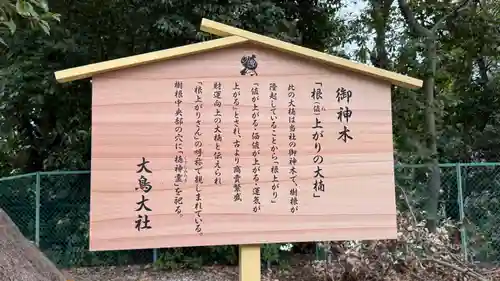 御神木
「根(値)上がりの大楠」
ね
此の大楠は当社の御神木で、樹根が
隆起していることから「根上がり」
「値が上がる・価値が上がる・運気が
上がる」とされ、古より商売繁盛
財運向上の大楠と伝えられ
「根上がりさん」の呼称で親しまれている。
樹根中央部の穴に「楠神霊」を祀る。
大鳥大社